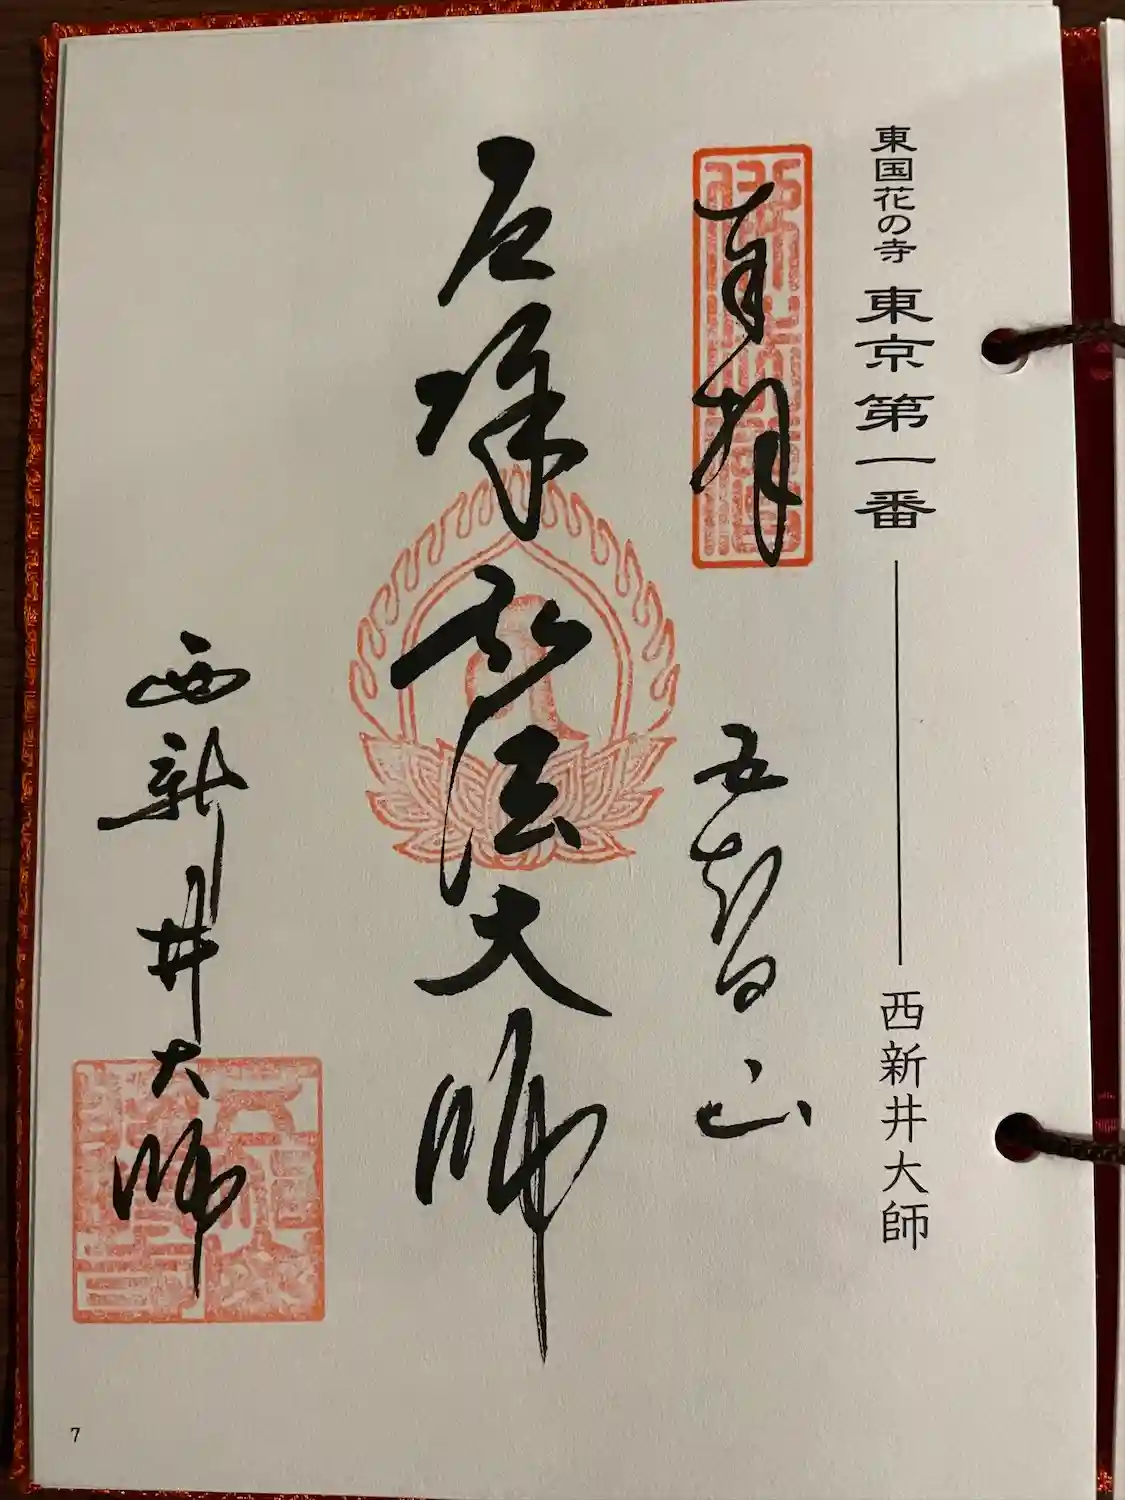 東国花の寺 東京 第一番 西新井大師
奉拝
五智山
厄除 弘法大師
西新井大師
7